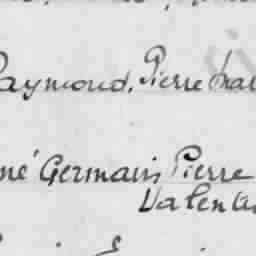 Raymond, Pierre
né Germain, Pierre
Valentin